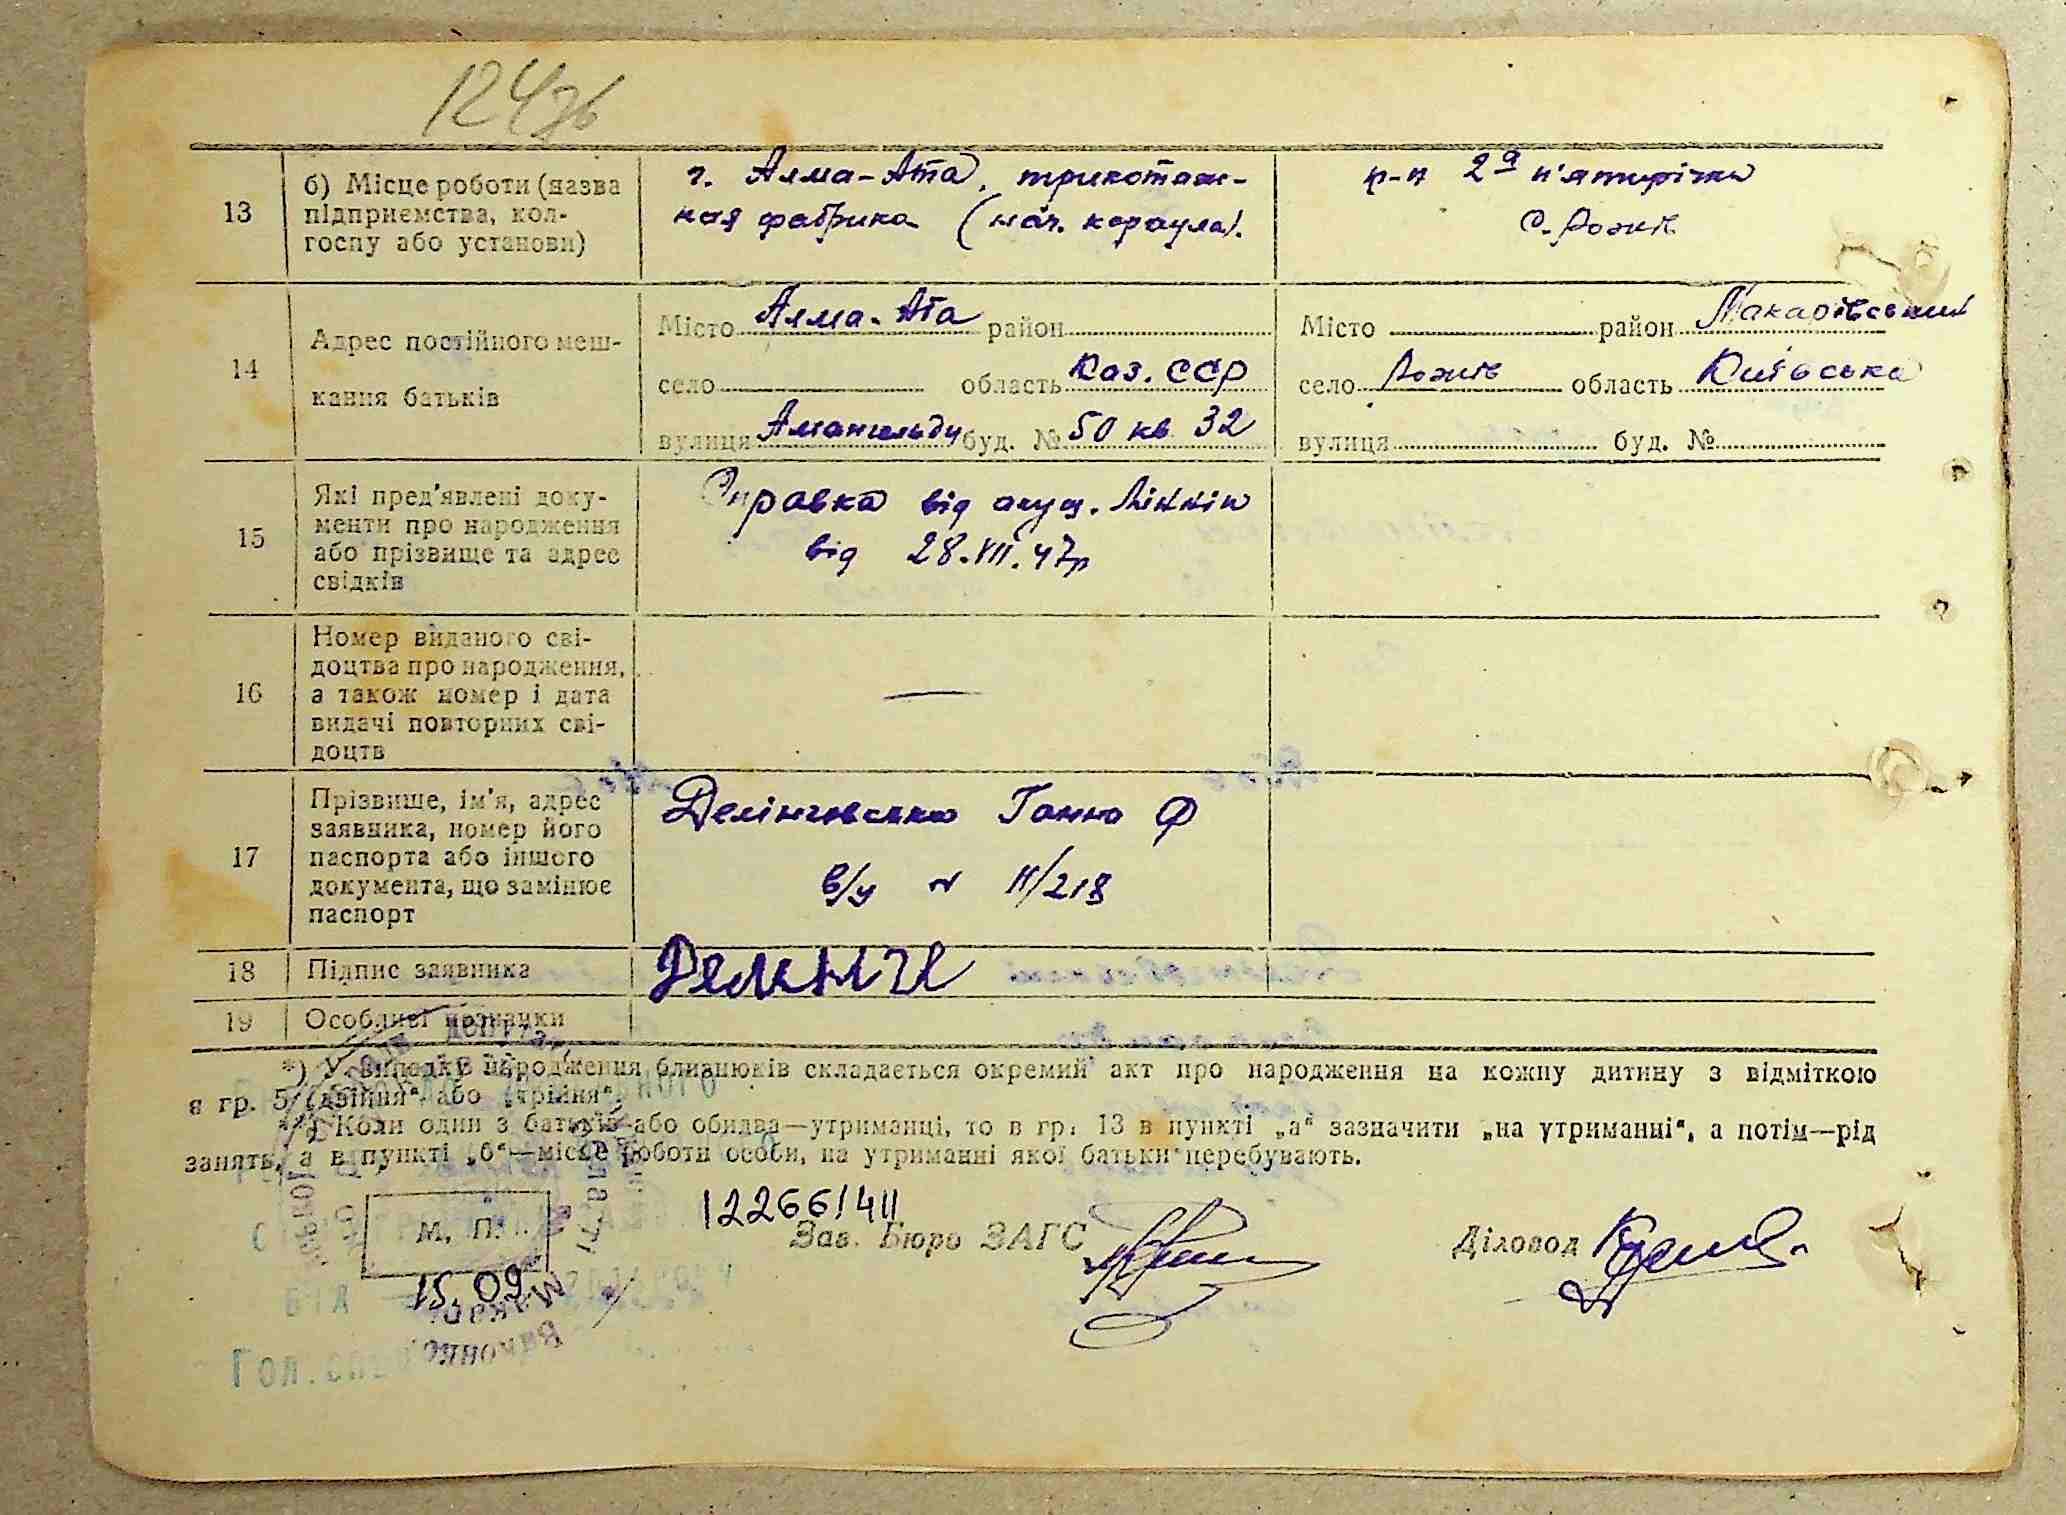 13
б) Місце роботи (назва
підприємства, кол-
госпу або установи)
г. Алма-Ата, трикотаж-
ная фабрика (нач. караула).
2а п'ятирічка
с. Рожів
14
Адрес постійного меш-
кання батьків
Місто Алма-Ата район
село область Каз. ССР
вулиця Амангельди буд. № 50 кв 32
Місто район Макарівський
село Рожів область Київська
вулиця буд. №
15
Які пред'явлені доку-
менти про народження
або прізвище та адрес
свідків
Справка від акуш.
від 28.VII.47р
16
Номер виданого сві-
доцтва про народження,
а також номер і дата
видачі повторних сві-
доцтв
—
17
Прізвище, ім'я, адрес
заявника, номер його
паспорта або іншого
документа, що замінює
паспорт
Делінговська Ганна Ф
в/у № 11/218
18
Підпис заявника
19
Особливі позначки
*) У випадку народження близнюків складається окремий акт про народження на кожну дитину з відміткою
в гр. 5 „двійня“ або „трійня“.
**) Коли один з батьків або обидва—утриманці, то в гр. 13 в пункті „а“ зазначити „на утриманні“, а потім—рід
занять, а в пункті „б“—місце роботи особи, на утриманні якої батьки перебувають.
М. П.
15.09
12266/411
Зав. Бюро ЗАГС
Діловод